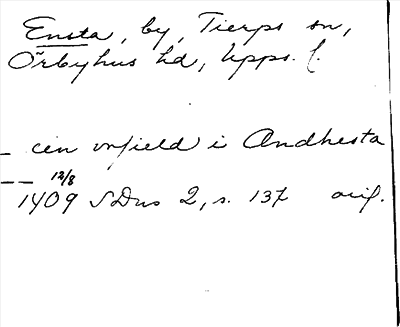 Ensta, by, Tierps sn,
Örbyhus hd, Upps. l.
– cen vnfield i Andhesta
– – 12/8
1409 SDns 2, s. 137 orig.